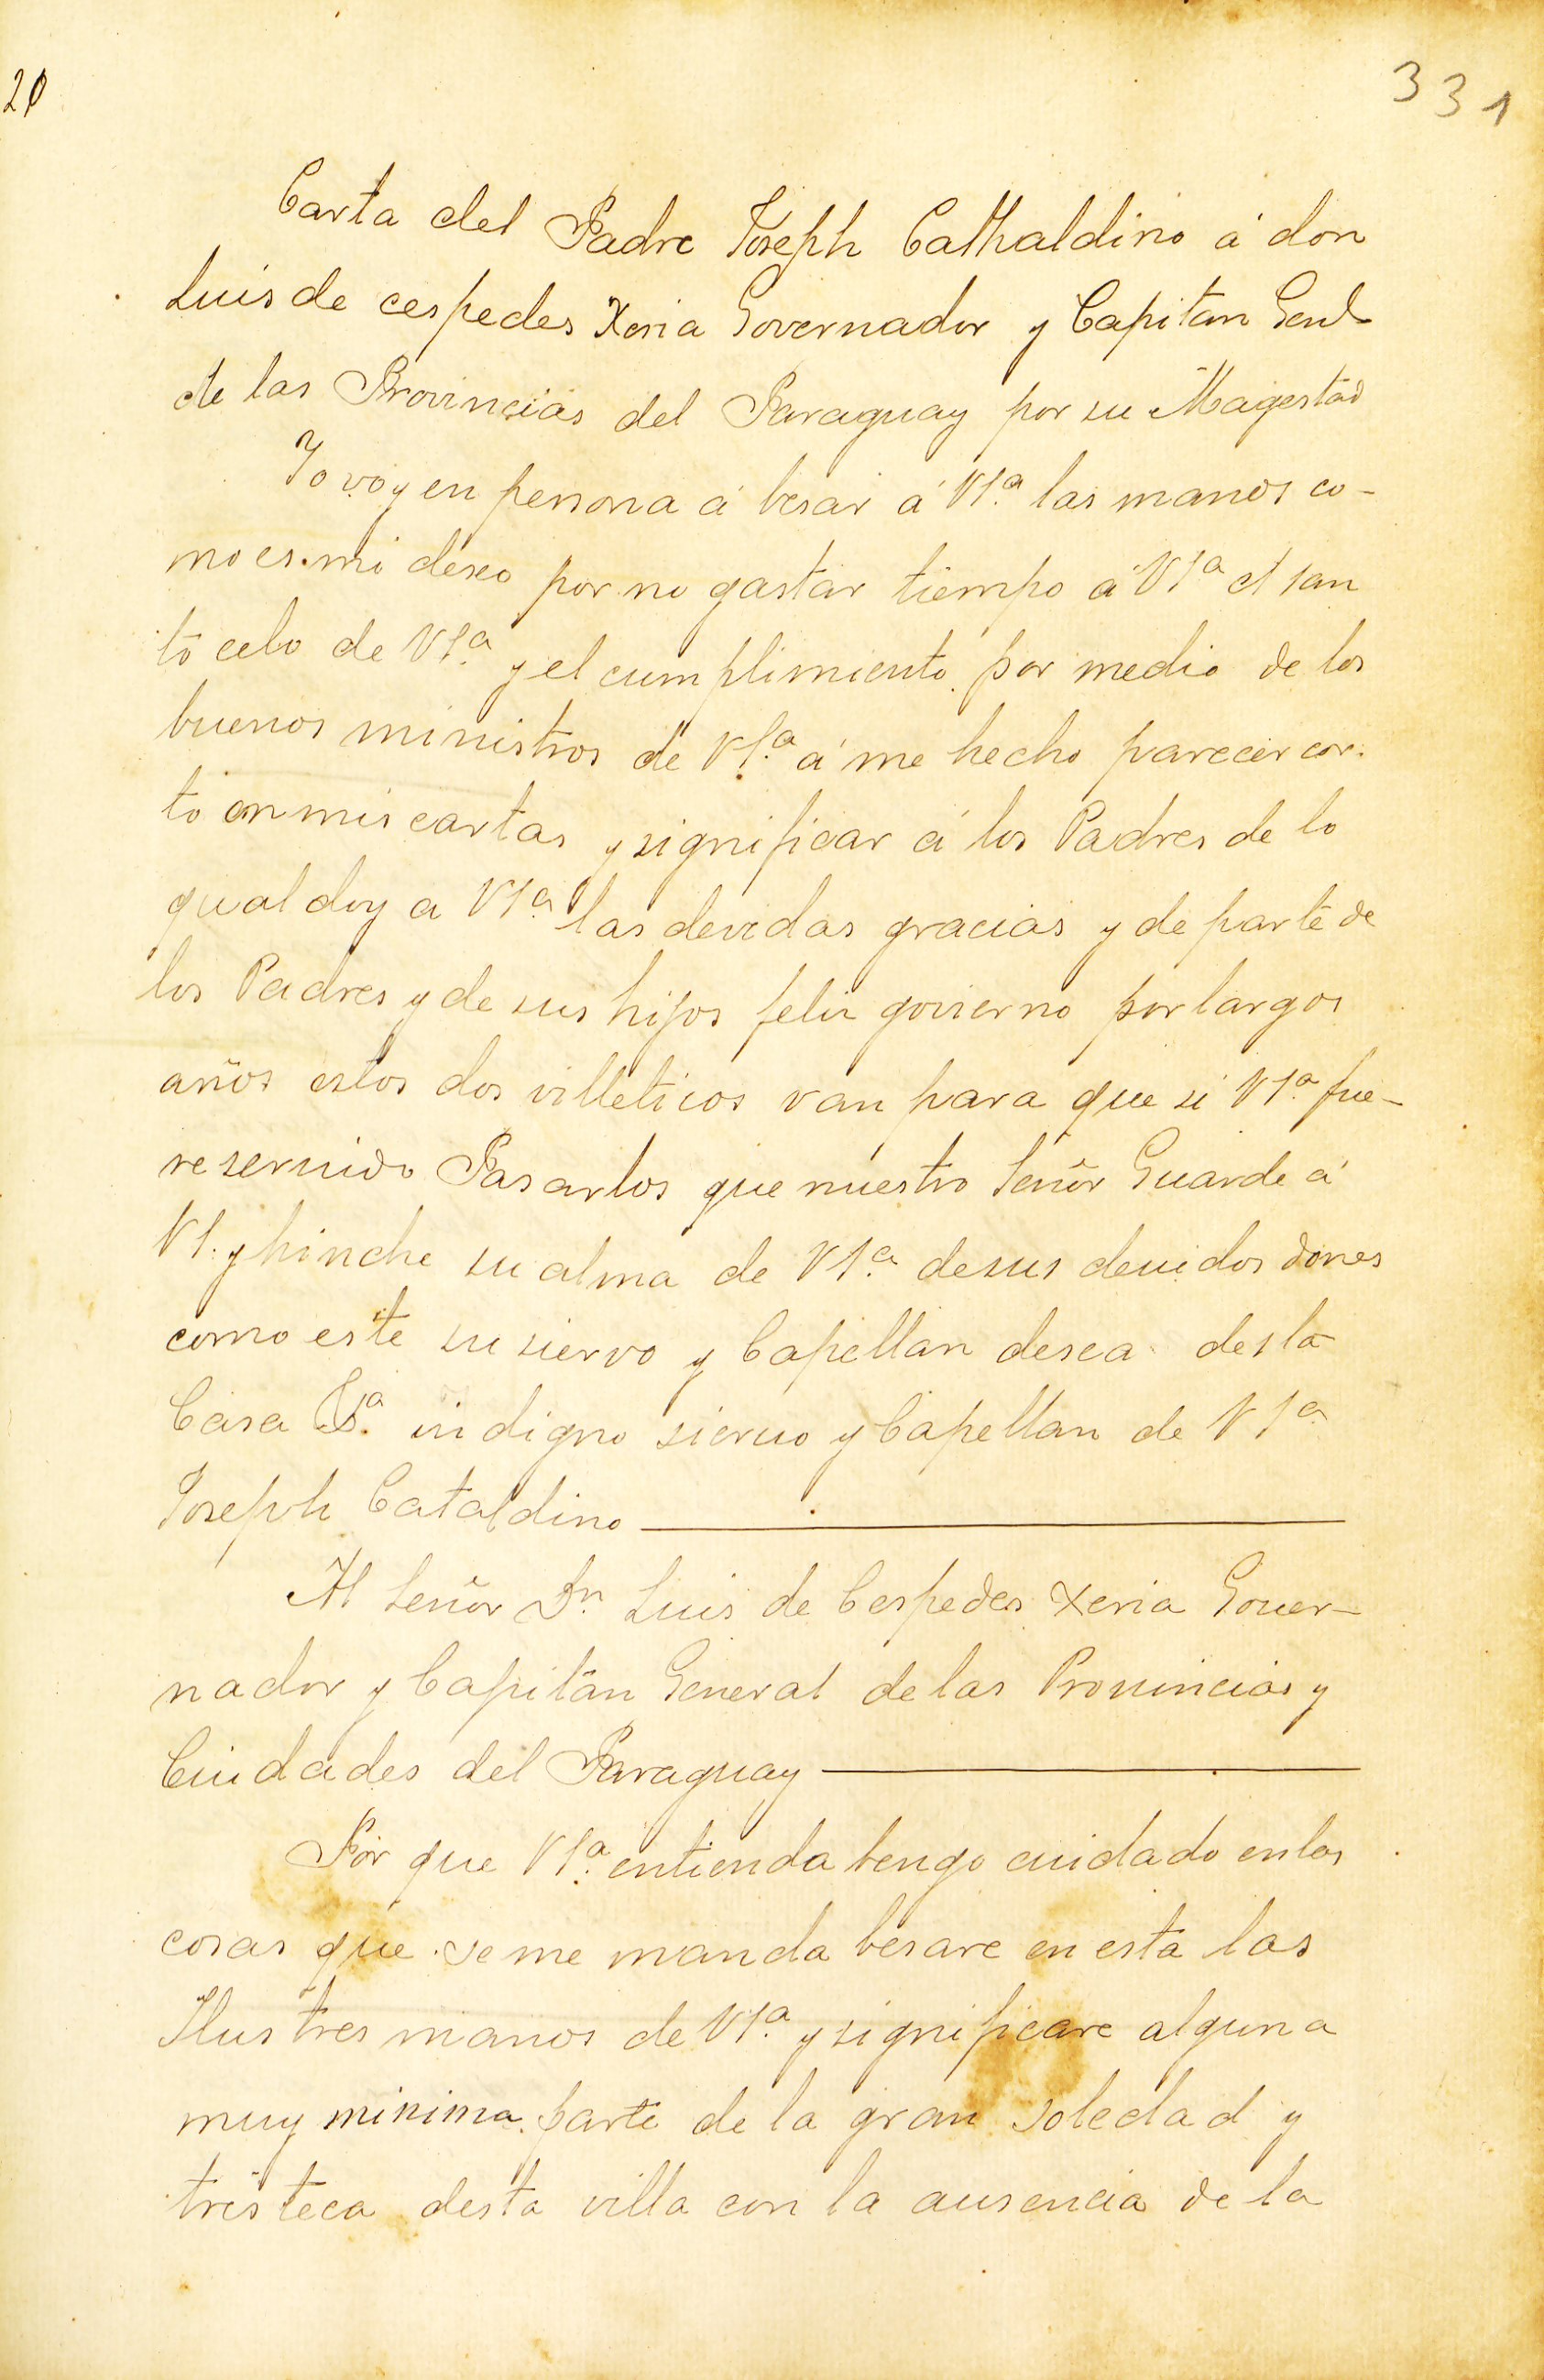 20
331
Carta del Padre Joseph Cathaldino á don
Luis de cespedes Xeria Governador y Capitan Genl
de las Provincias del Paraguay por su Magestad
Yo voy en persona á besar á VSª las manos co-
mo es mi deseo por no gastar tiempo á VSª el san
to celo de VSª y el cumplimiento por medio de los
buenos ministros de VSª á me hecho parecer cor-
to en mis cartas y significar á los Padres de lo
qual doy a VSª las devidas gracias y de parte de
los Padres y de sus hijos felix govierno por largos
años estos dos villeticos van para que si VSª fue-
re seruido Pasarlos que nuestro Señor Guarde á
VS. y hinche su alma de VSª de sus deuidos dones
como este su siervo y Capellan desea desta
Casa indigno sieruo y Capellan de VSª
Joseph Cataldino
Al Señor Dn Luis de Cespedes Xeria Gouer-
nador y Capitan General de las Prouincias y
Ciudades del Paraguay
Por que VSª entienda tengo cuidado en las
cosas que se me manda besare en esta las
Ilustres manos de VSª y significare alguna
muy minima parte de la gran soledad y
tristeca desta villa con la ausencia de la